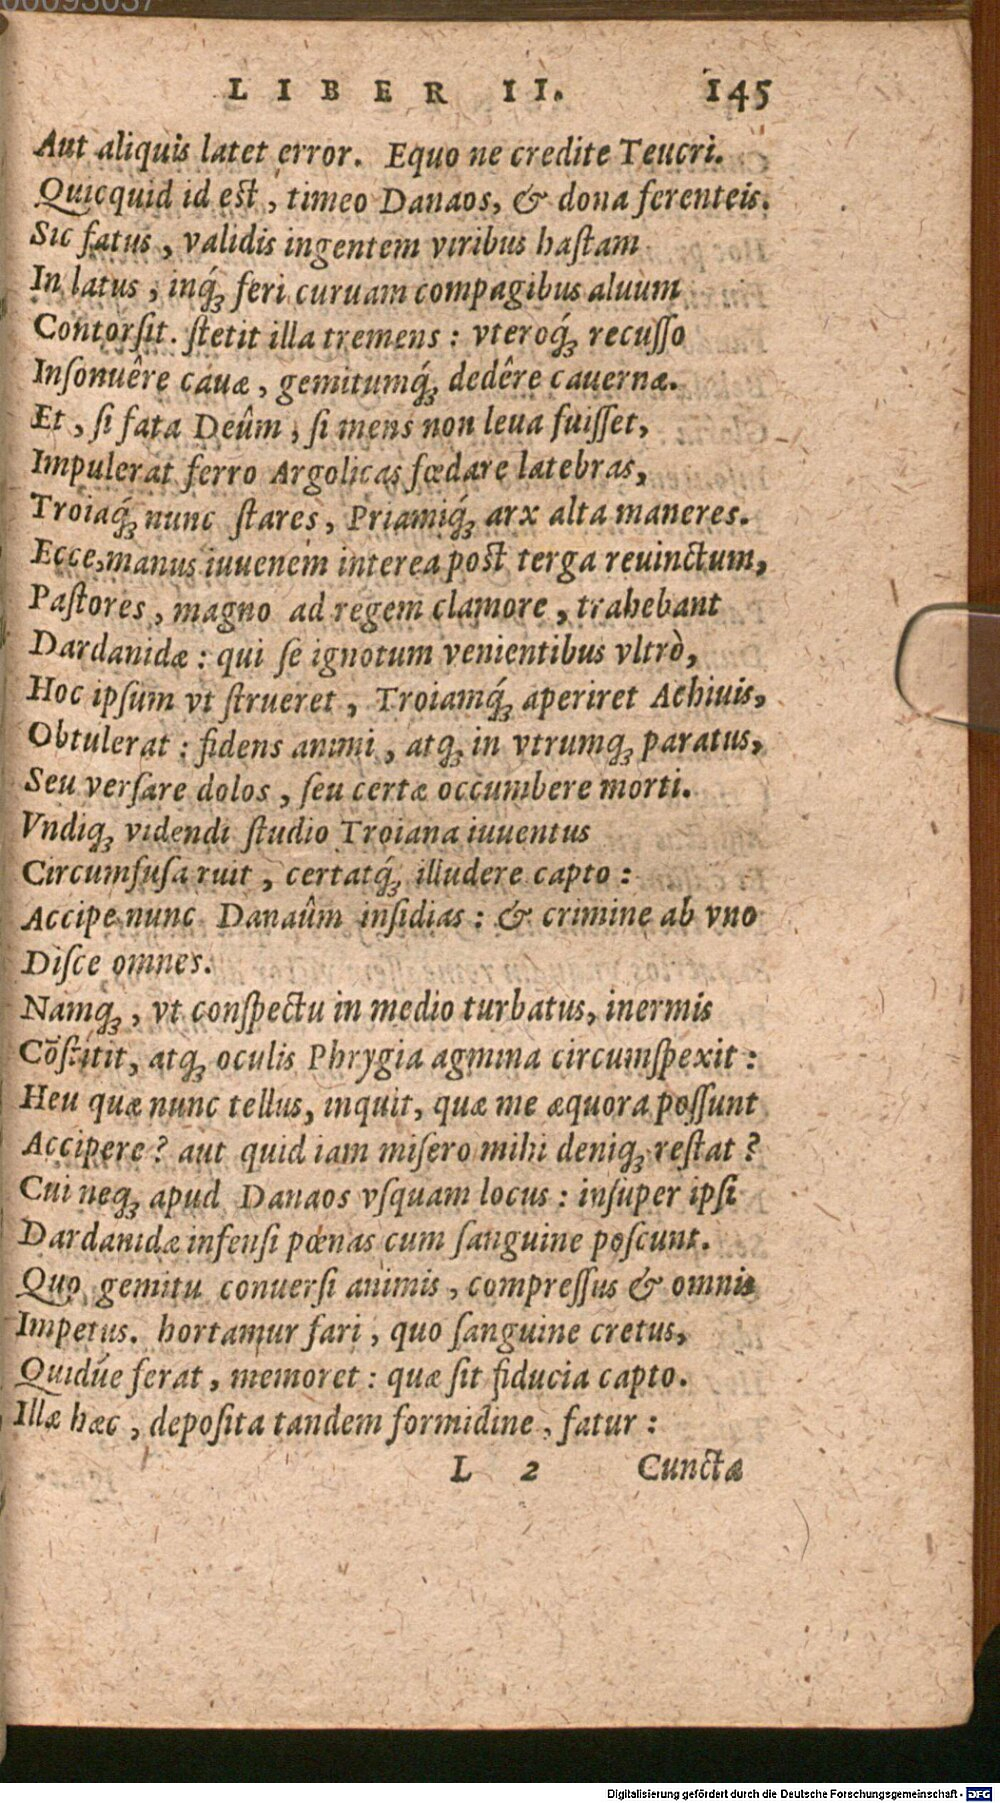 00093037
LIBER II. 145
Aut aliquis latet error. Equo ne credite Teucri.
Quicquid id est, timeo Danaos, & dona ferenteis.
Sic fatus, validis ingentem viribus haſtam
In latus, inq́ꝫ feri curuam compagibus aluum
Contorſit. ſtetit illa tremens: vteroq́ꝫ recuſſo
Inſonuêre cauæ, gemitumq́ꝫ dedêre cauernæ.
Et, ſi fata Deûm, ſi mens non leua fuiſſet,
Impulerat ferro Argolicas fœdare latebras,
Troiaq́ꝫ nunc ſtares, Priamiq́ꝫ arx alta maneres.
Ecce, manus iuuenem interea poſt terga reuinctum,
Paſtores, magno ad regem clamore, trahebant
Dardanidæ: qui ſe ignotum venientibus vltrò,
Hoc ipſum vt ſtrueret, Troiamq́ꝫ aperiret Achiuis,
Obtulerat: fidens animi, atqꝫ in vtrumqꝫ paratus,
Seu verſare dolos, ſeu certæ occumbere morti.
Vndiqꝫ videndi ſtudio Troiana iuuentus
Circumfuſa ruit, certatq́ꝫ illudere capto:
Accipe nunc Danaûm inſidias: & crimine ab vno
Diſce omnes.
Namqꝫ, vt conſpectu in medio turbatus, inermis
Cõſtitit, atqꝫ oculis Phrygia agmina circumſpexit:
Heu quæ nunc tellus, inquit, quæ me æquora poſſunt
Accipere? aut quid iam miſero mihi deniqꝫ reſtat?
Cui neqꝫ apud Danaos vſquam locus: inſuper ipſi
Dardanidæ infenſi pœnas cum ſanguine poſcunt.
Quo gemitu conuerſi animis, compreſſus & omnis
Impetus. hortamur fari, quo ſanguine cretus,
Quidúe ferat, memoret: quæ ſit fiducia capto.
Illæ hæc, depoſita tandem formidine, fatur:
L 2 Cunctæ
Digitalisierung gefördert durch die Deutsche Forschungsgemeinschaft - DFG